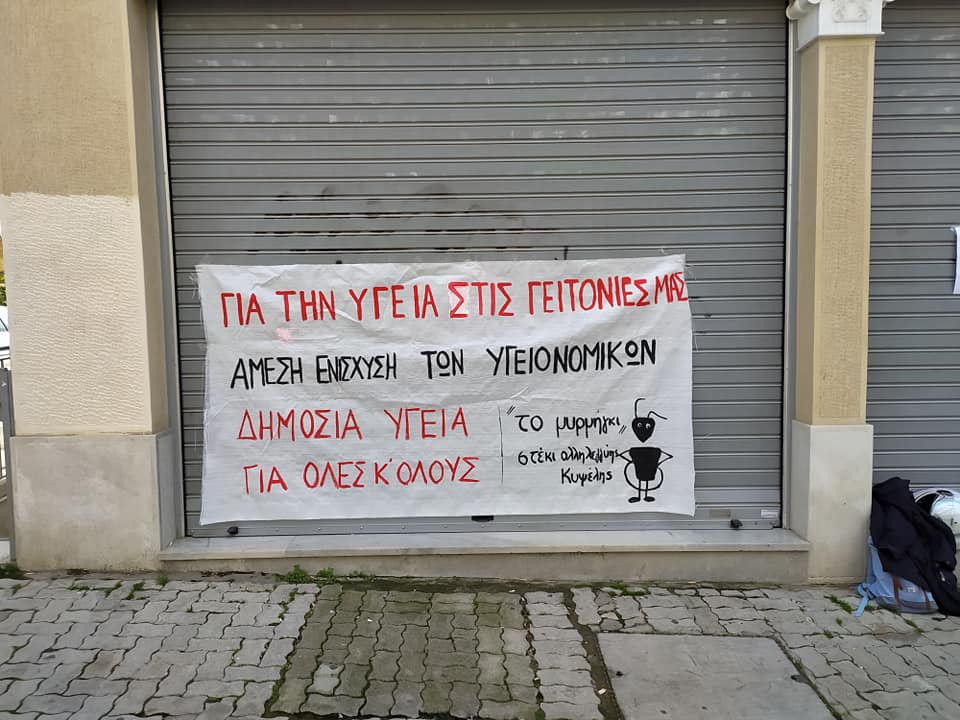 ΓΙΑ ΤΗΝ ΥΓΕΙΑ ΣΤΙΣ ΓΕΙΤΟΝΙΕΣ ΜΑΣ
ΑΜΕΣΗ ΕΝΙΣΧΥΣΗ ΤΩΝ ΥΓΕΙΟΝΟΜΙΚΩΝ
ΔΗΜΟΣΙΑ ΥΓΕΙΑ
ΓΙΑ ΟΛΕΣ Κ' ΟΛΟΥΣ
"το μυρμήγκι"
στέκι αλληλεγγύης
Κυψέλης